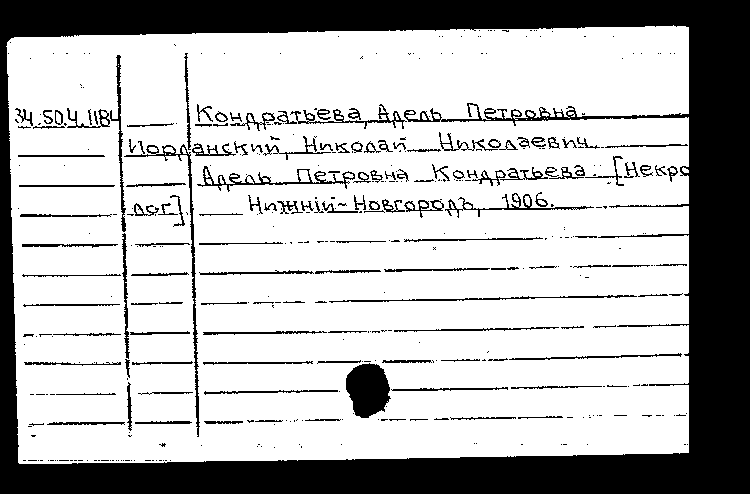 34.50.4.1184 Кондратьева, Адель Петровна.
Иорданский, Николай Николаевич.
Адель Петровна Кондратьева. [Некро
лог] Нижнiй-Новгородъ, 1906.